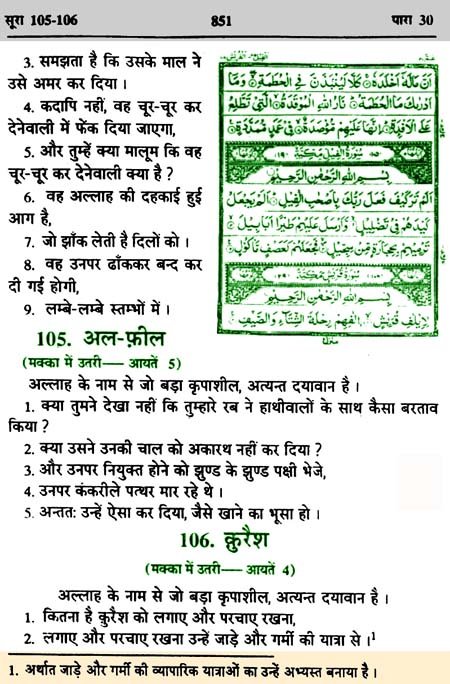 सूरा 105-106 851 पारा 30
3. समझता है कि उसके माल ने
उसे अमर कर दिया ।
4. कदापि नहीं, वह चूर-चूर कर
देनेवाली में फेंक दिया जाएगा,
5. और तुम्हें क्या मालूम कि वह
चूर-चूर कर देनेवाली क्या है ?
6. वह अल्लाह की दहकाई हुई
आग है,
7. जो झाँक लेती है दिलों को ।
8. वह उनपर ढाँककर बन्द कर
दी गई होगी,
9. लम्बे-लम्बे स्तम्भों में ।
اَنَّ مَالَهٗۤ اَخْلَدَهٗ كَلَّا لَيُنْۢبَذَنَّ فِي الْحُطَمَةِ وَمَاۤ
اَدْرٰىكَ مَا الْحُطَمَةُ نَارُ اللّٰهِ الْمُوْقَدَةُ الَّتِيْ تَطَّلِعُ
عَلَى الْاَفْـِٕدَةِ اِنَّهَا عَلَيْهِمْ مُّؤْصَدَةٌ فِيْ عَمَدٍ مُّمَدَّدَةٍ
سُوْرَةُ الْفِيْلِ مَكِّيَّةٌ
بِسْمِ اللّٰهِ الرَّحْمٰنِ الرَّحِيْمِ
اَلَمْ تَرَ كَيْفَ فَعَلَ رَبُّكَ بِاَصْحٰبِ الْفِيْلِ اَلَمْ يَجْعَلْ
كَيْدَهُمْ فِيْ تَضْلِيْلٍ وَّاَرْسَلَ عَلَيْهِمْ طَيْرًا اَبَابِيْلَ
تَرْمِيْهِمْ بِحِجَارَةٍ مِّنْ سِجِّيْلٍ فَجَعَلَهُمْ كَعَصْفٍ مَّاْكُوْلٍ
سُوْرَةُ قُرَيْشٍ مَكِّيَّةٌ
بِسْمِ اللّٰهِ الرَّحْمٰنِ الرَّحِيْمِ
لِاِيْلٰفِ قُرَيْشٍ اٖلٰفِهِمْ رِحْلَةَ الشِّتَآءِ وَالصَّيْفِ
105. अल-फ़ील
(मक्का में उतरी— आयतें 5)
अल्लाह के नाम से जो बड़ा कृपाशील, अत्यन्त दयावान है ।
1. क्या तुमने देखा नहीं कि तुम्हारे रब ने हाथीवालों के साथ कैसा बरताव
किया ?
2. क्या उसने उनकी चाल को अकारथ नहीं कर दिया ?
3. और उनपर नियुक्त होने को झुण्ड के झुण्ड पक्षी भेजे,
4. उनपर कंकरीले पत्थर मार रहे थे ।
5. अन्ततः उन्हें ऐसा कर दिया, जैसे खाने का भूसा हो ।
106. क़ुरैश
(मक्का में उतरी— आयतें 4)
अल्लाह के नाम से जो बड़ा कृपाशील, अत्यन्त दयावान है ।
1. कितना है क़ुरैश को लगाए और परचाए रखना,
2. लगाए और परचाए रखना उन्हें जाड़े और गर्मी की यात्रा से ।¹
1. अर्थात जाड़े और गर्मी की व्यापारिक यात्राओं का उन्हें अभ्यस्त बनाया है ।